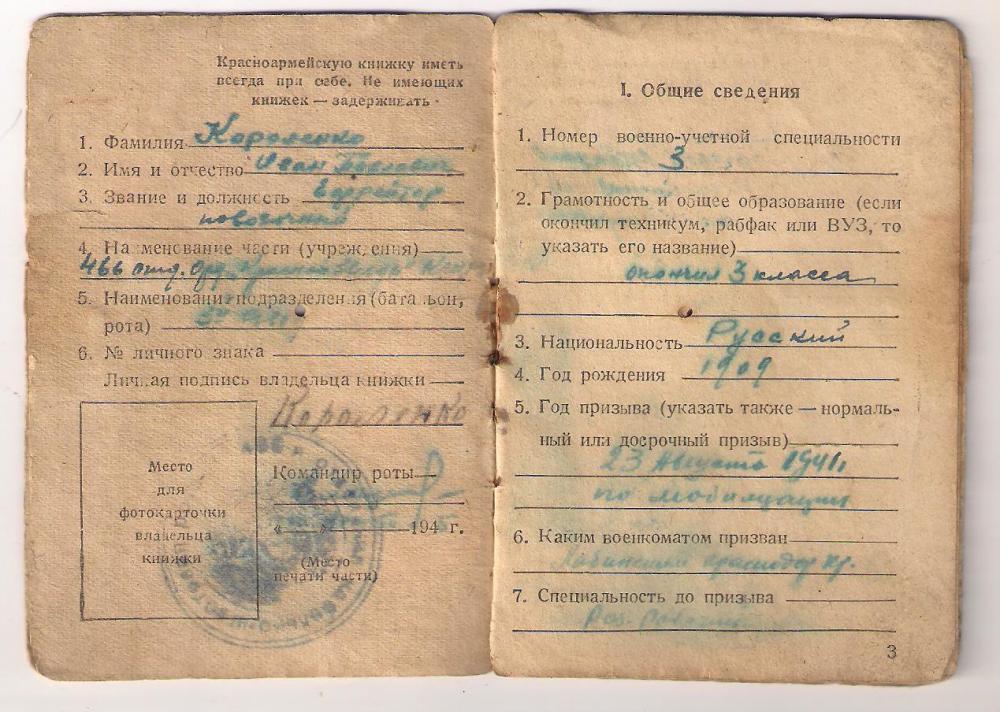 Красноармейскую книжку иметь
всегда при себе. Не имеющих
книжек — задерживать.
1. Фамилия Короленко
2. Имя и отчество Иван
3. Звание и должность Ефрейтор
повозочный
4. Наименование части (учреждения)
466 отд. Орд.
5. Наименование подразделения (батальон,
рота)
6. № личного знака
Личная подпись владельца книжки
Короленко
Место
для
фотокарточки
владельца
книжки
Командир роты
« » 194 г.
(Место
печати части)
I. Общие сведения
1. Номер военно-учетной специальности
3
2. Грамотность и общее образование (если
окончил техникум, рабфак или ВУЗ, то
указать его название)
окончил 3 класса
3. Национальность Русский
4. Год рождения 1909
5. Год призыва (указать также — нормаль-
ный или досрочный призыв)
23 Августа 1941г.
по мобилизации
6. Каким военкоматом призван
Краснодар кр.
7. Специальность до призыва
3